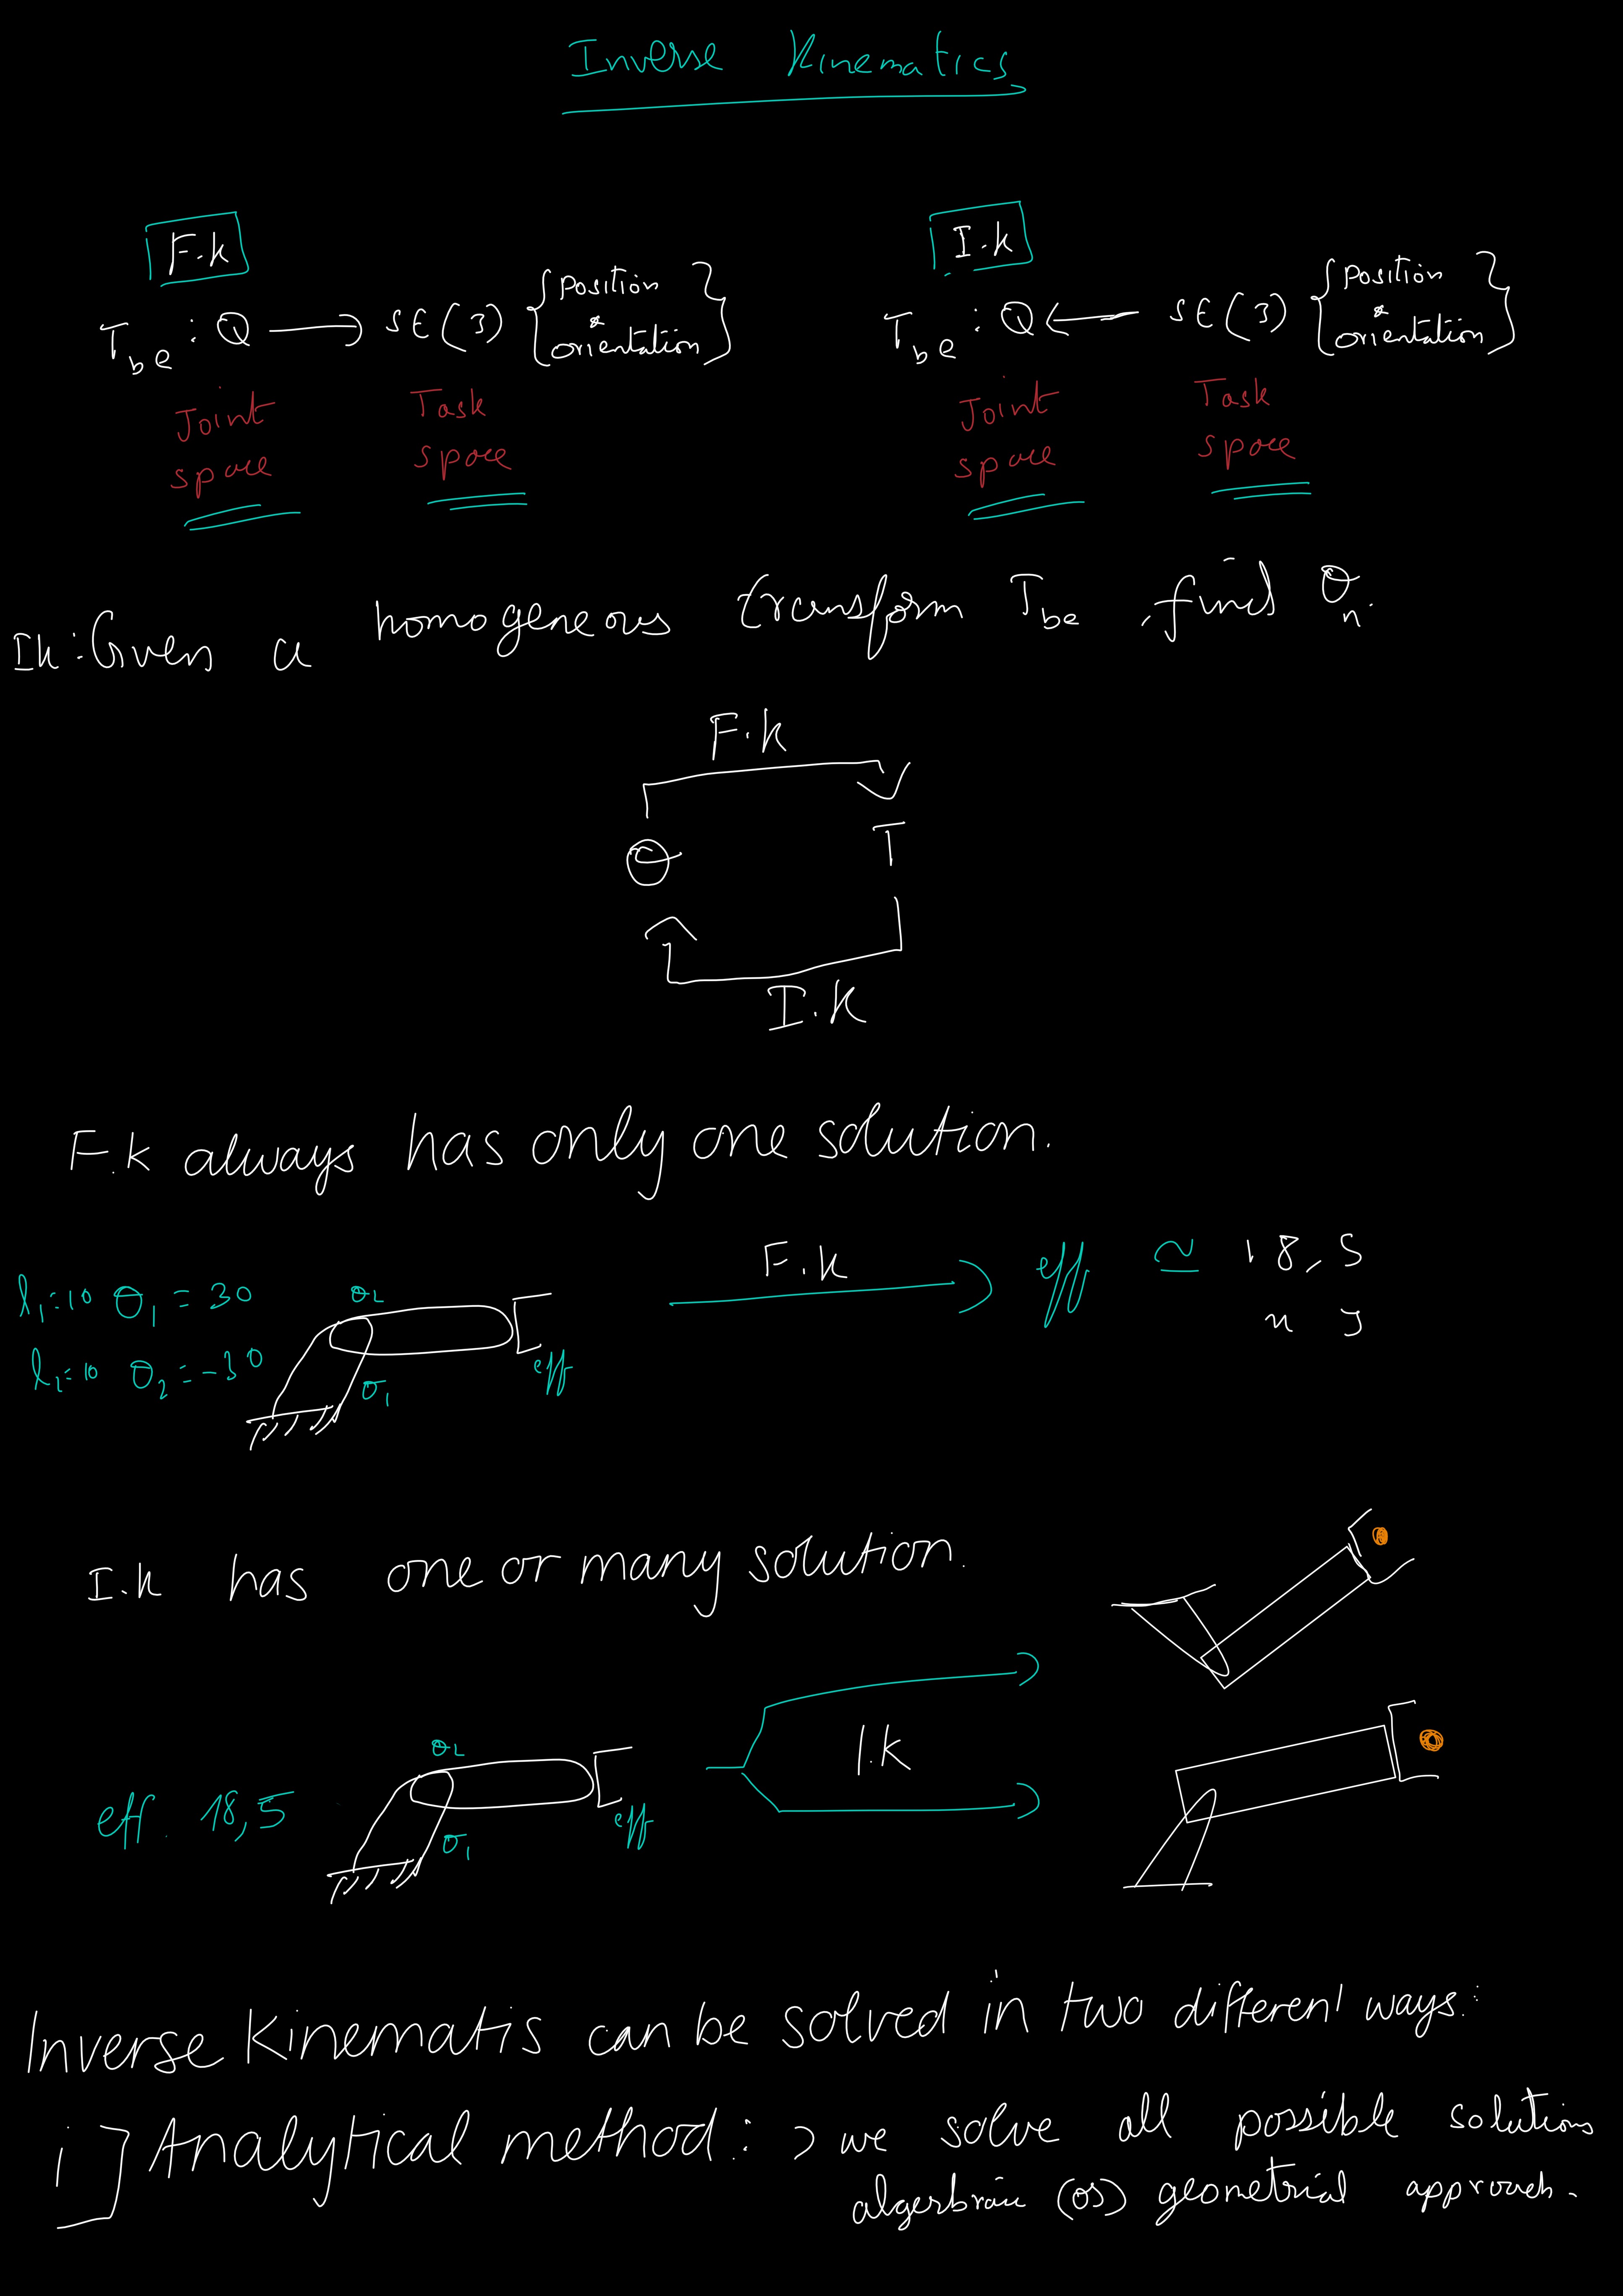 Inverse Kinematics
F.k
I.k
T_be : Q → SE(3) { Position & orientation }
T_be : Q ← SE(3) { Position & orientation }
Joint space
Task space
Joint space
Task space
Ik: Given a homogeneous transform T_be, find θ_n.
F.k
θ
T
I.K
F.k always has only one solution.
l₁=10 θ₁ = 30
l₂=10 θ₂ = -30
θ₂
θ₁
eff
F.k
eff ≃ 18, 5
x y
I.k has one or many solution.
eff. 18,5
θ₂
θ₁
eff
I.K
Inverse Kinematis can be solved in two different ways:
i] Analytical method: → we solve all possible solutions
algerbraic (or) geometrial approach.